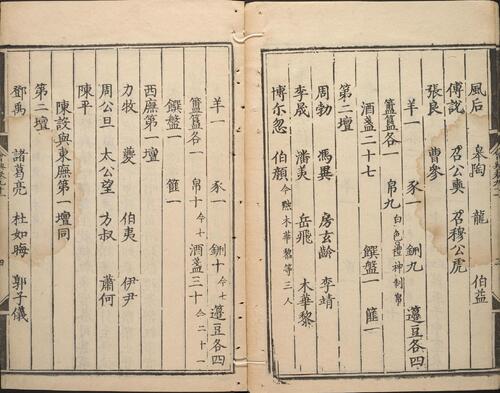 風后 皋陶 龍 伯益
傅說 召公奭 召穆公虎
張良 曹參
羊一 豕一 鉶九 籩豆各四
簠簋各一 帛九 白色禮神制帛
酒盞二十七 饌盤一 篚一
第二壇
周勃 馮異 房玄齡 李靖
李晟 潘美 岳飛 木華黎
博尔忽 伯顏 今黜木華黎等三人
羊一 豕一 鉶十 今七 籩豆各四
簠簋各一 帛十 今七 酒盞三十 今二十一
饌盤一 篚一
西廡第一壇
力牧 夔 伯夷 伊尹
周公旦 太公望 方叔 蕭何
陳平
陳設與東廡第一壇同
第二壇
鄧禹 諸葛亮 杜如晦 郭子儀